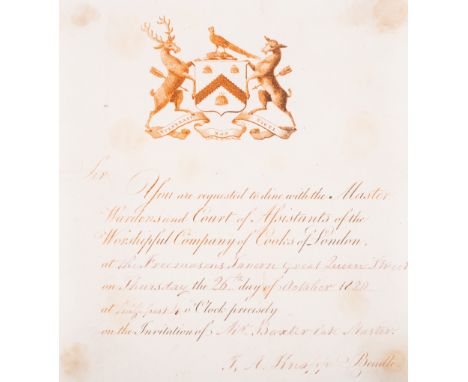 VULNERATI NON VICTI
Sir
You are requested to dine with the Master
Wardens and Court of Assistants of the
Worshipful Company of Cooks of London.
at the Freemasons Tavern Great Queen Street
on Thursday the 26th day of October 1820
at half past 4 o'Clock precisely
on the Invitation of Mr. Baxter late Master.
J. A. Knapp Beadle